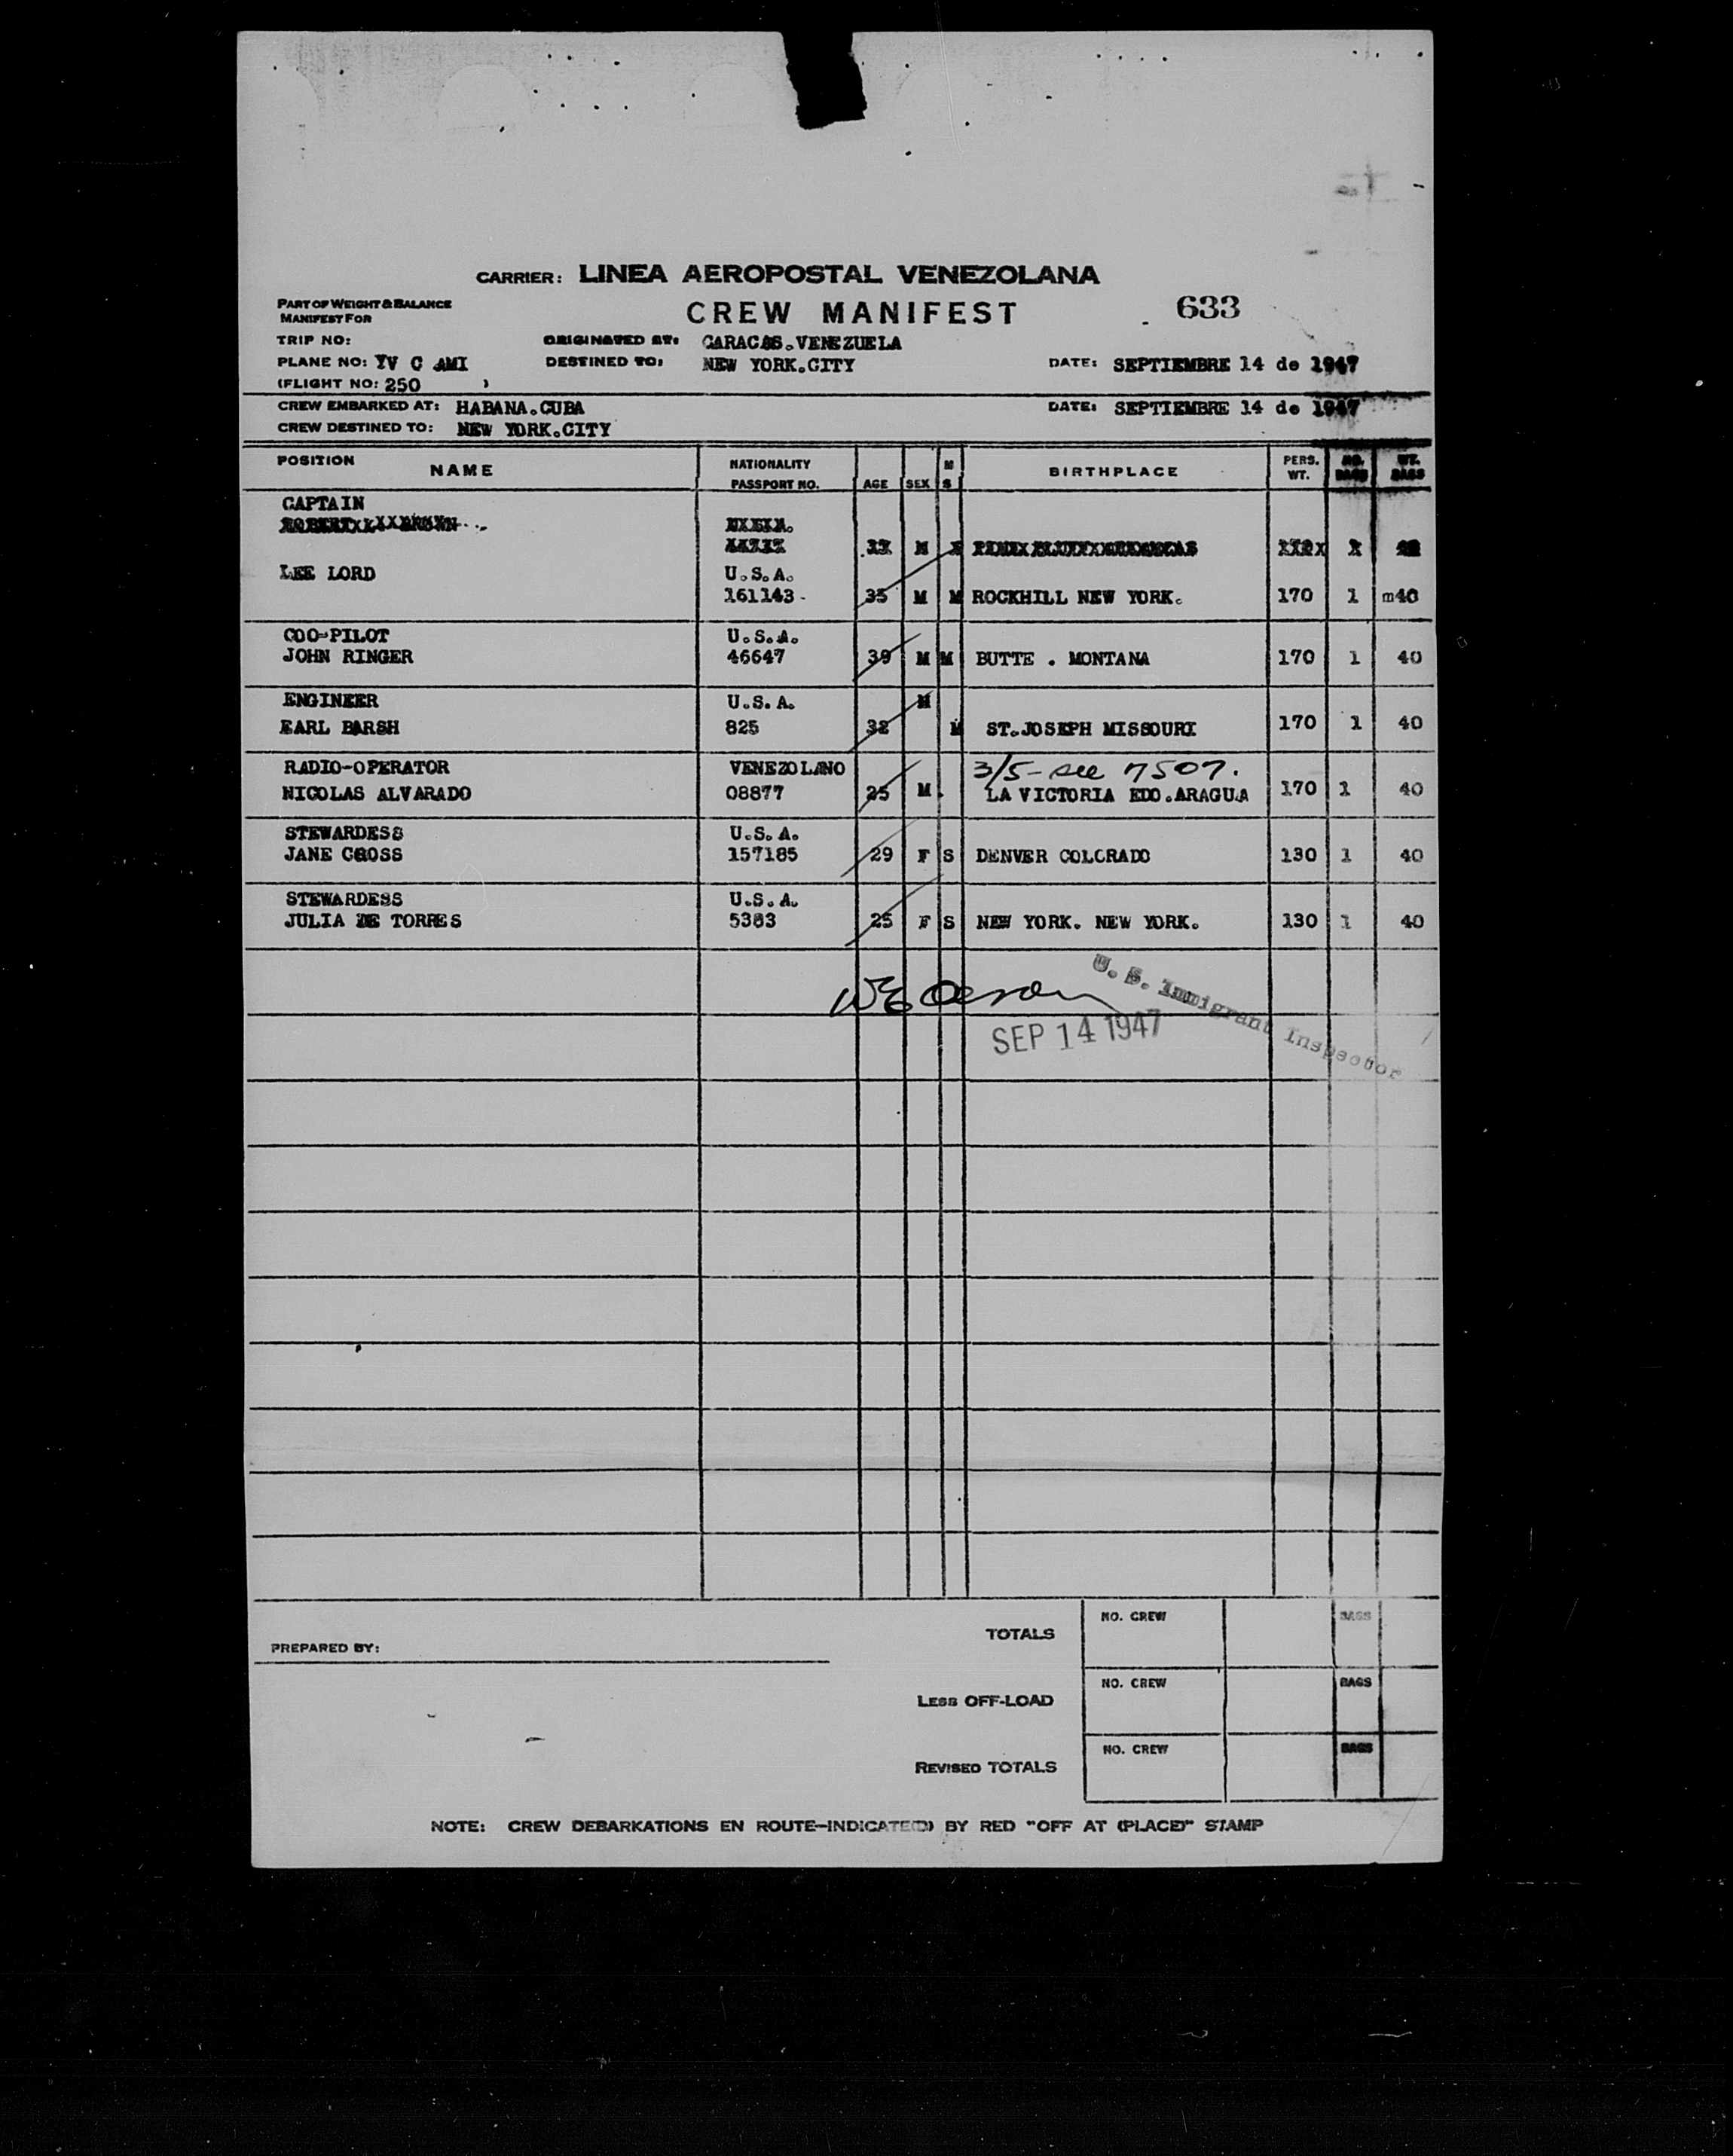 CARRIER: LINEA AEROPOSTAL VENEZOLANA
PART OF WEIGHT & BALANCE
MANIFEST FOR
CREW MANIFEST
633
TRIP NO:
ORIGINATED AT: CARACAS.VENEZUELA
PLANE NO: YV C AMI
DESTINED TO: NEW YORK.CITY
DATE: SEPTIEMBRE 14 de 1947
(FLIGHT NO: 250 )
CREW EMBARKED AT: HABANA.CUBA
DATE: SEPTIEMBRE 14 de 1947
CREW DESTINED TO: NEW YORK.CITY
POSITION NAME NATIONALITY PASSPORT NO. AGE SEX M S BIRTHPLACE PERS. WT. NO. BAGS WT. BAGS
CAPTAIN
LEE LORD U.S.A.
161143- 35 M M ROCKHILL NEW YORK. 170 1 m40
COO-PILOT U.S.A.
JOHN RINGER 46647 39 M M BUTTE . MONTANA 170 1 40
ENGINEER U.S.A. M
EARL BARSH 825 38 M ST.JOSEPH MISSOURI 170 1 40
RADIO-OPERATOR VENEZOLANO 3/5- see 7507.
NICOLAS ALVARADO 08877 25 M. LA VICTORIA EDO.ARAGUA 170 1 40
STEWARDESS U.S.A.
JANE CROSS 157185 29 F S DENVER COLORADO 130 1 40
STEWARDESS U.S.A.
JULIA DE TORRES 5383 25 F S NEW YORK. NEW YORK. 130 1 40
U. S. Immigrant Inspector
SEP 14 1947
TOTALS NO. CREW BAGS
PREPARED BY:
LESS OFF-LOAD NO. CREW BAGS
REVISED TOTALS NO. CREW BAGS
NOTE: CREW DEBARKATIONS EN ROUTE-INDICATED) BY RED "OFF AT (PLACE)" STAMP